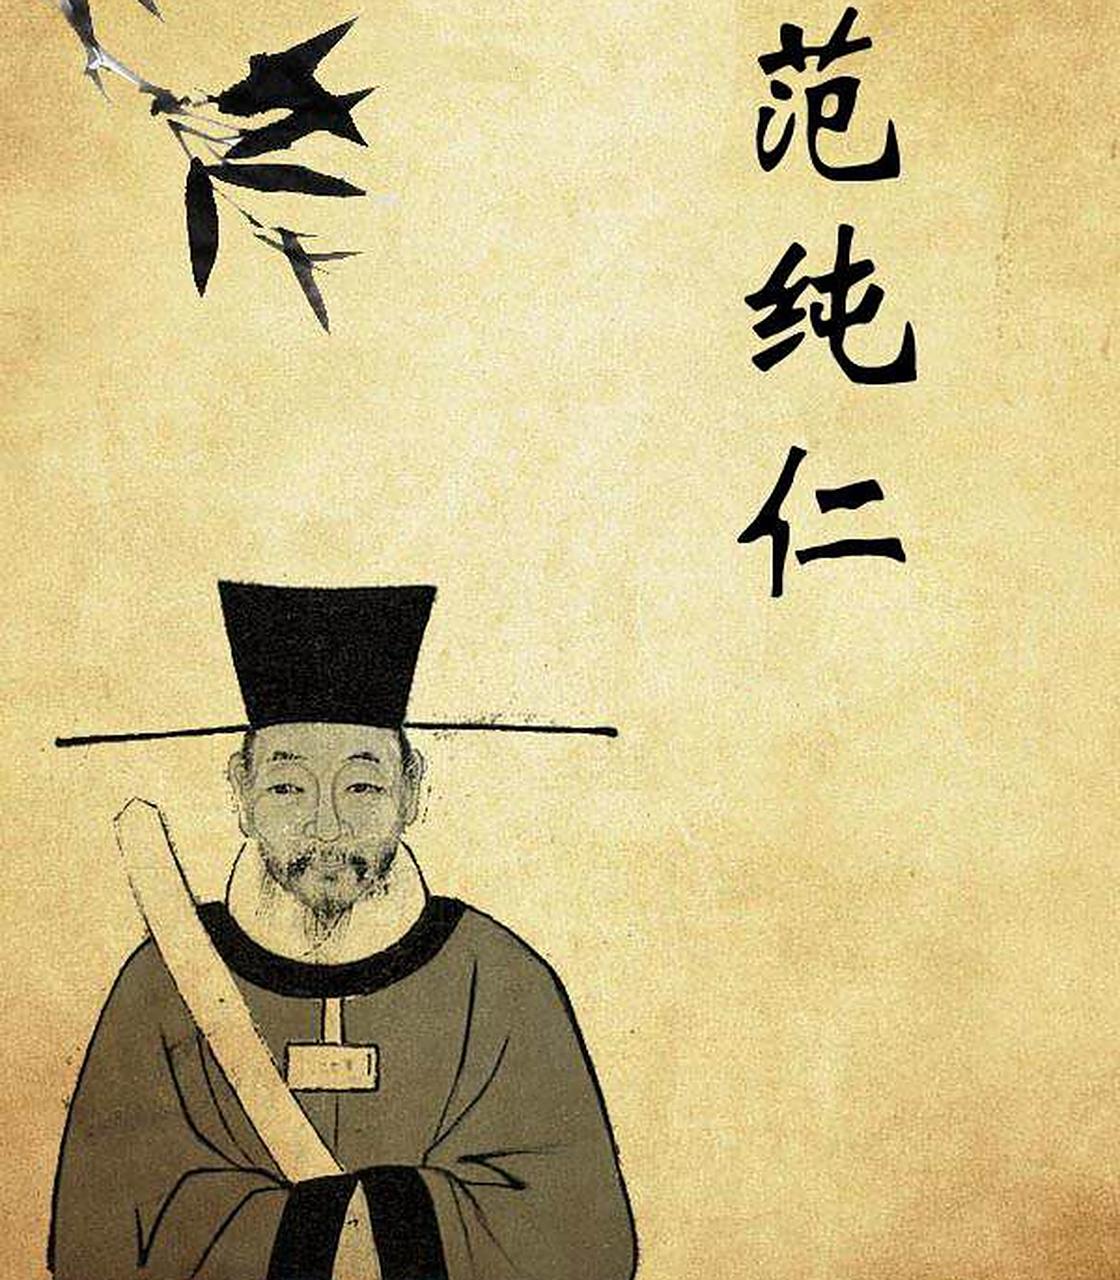 范纯仁